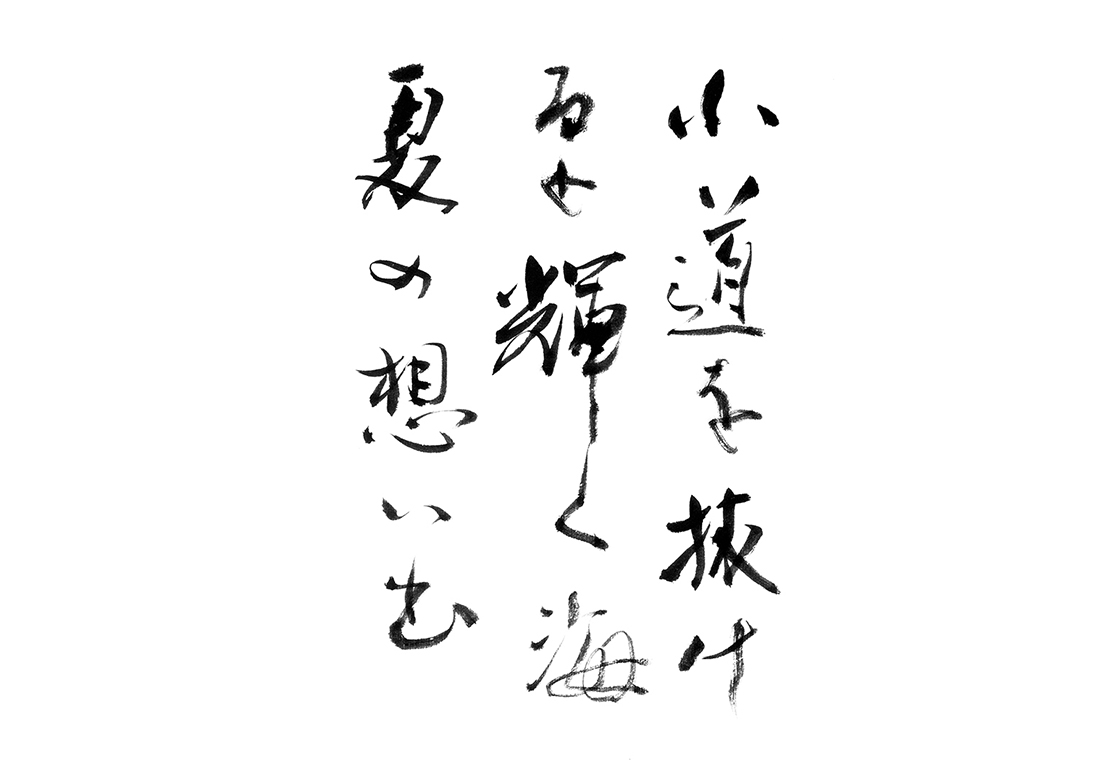 小道を抜け
輝く海
夏の想い出